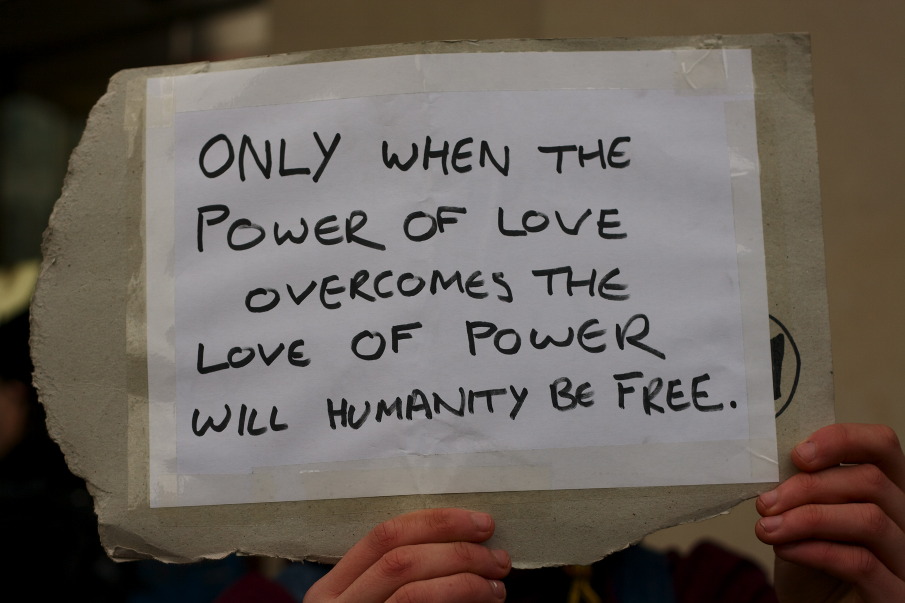 ONLY WHEN THE
POWER OF LOVE
OVERCOMES THE
LOVE OF POWER
WILL HUMANITY BE FREE.